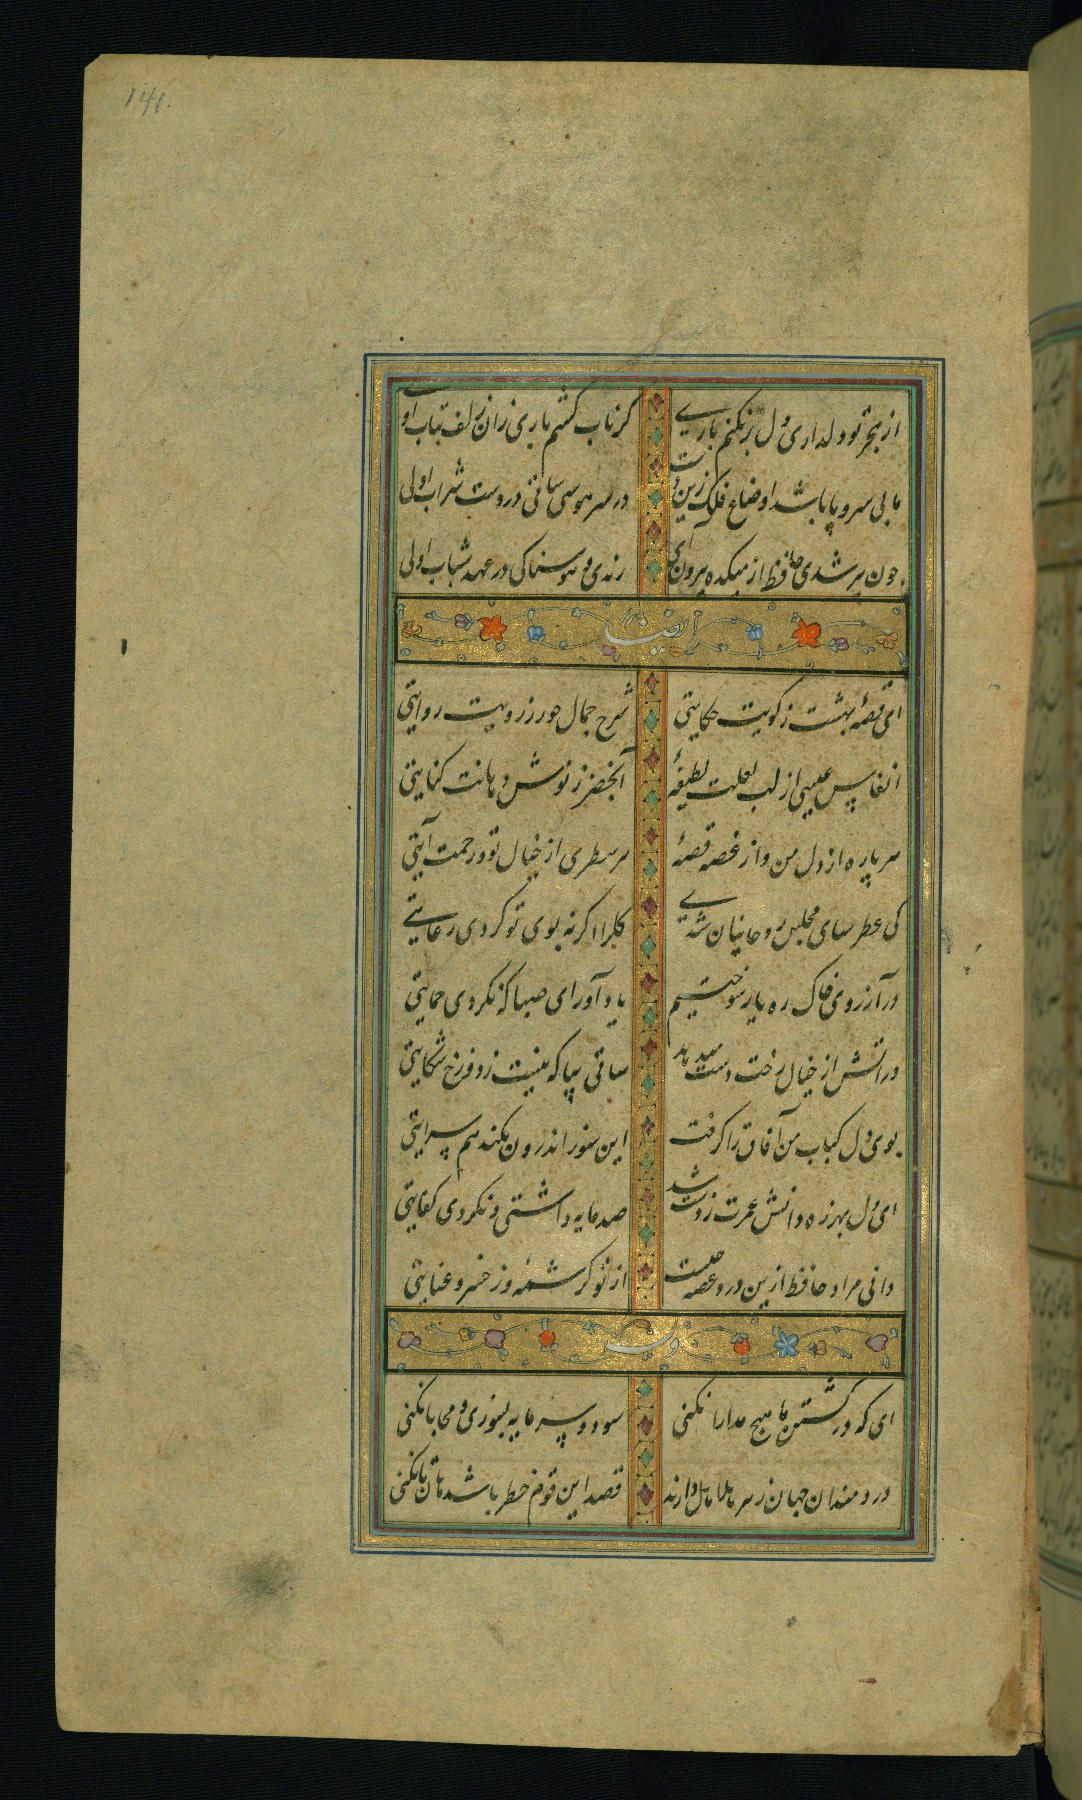 146.
از همچو تو دلداری دل بر نکنم باری گر تاب کشم باری زان زلف بتاب اولی
ما بی سر و پا باشد اوضاع فلک زین دست در سر هوس ساقی در دست شراب اولی
چون پیر شدی حافظ از میکده بیرون آی رندی و هوسناکی در عهد شباب اولی
ایضا
ای قصهٔ بهشت ز کویت حکایتی شرح جمال حور ز رویت روایتی
انفاس عیسی از لب لعلت لطیفهٔ آب خضر ز نوش دهانت کنایتی
هر پاره از دل من و از غصه قصهٔ هر سطری از خیال تو و رحمت آیتی
کی عطر سای مجلس روحانیان شدی گل را اگر نه بوی تو کردی رعایتی
در آرزوی خاک ره یار سوختیم یاد آور ای صبا که نکردی حمایتی
در آتش از خیال رخت دست میدهد ساقی بیا که نیست ز دوزخ شکایتی
بوی دل کباب من آفاق را گرفت این سوز اندرون بکند هم سرایتی
ای دل بهرزه دانش و عمرت ز دست شد صد مایه داشتی و نکردی کفایتی
دانی مراد حافظ ازین درد و غصه چیست از تو کرشمهٔ و ز خسرو عنایتی
وله
ای که در کشتن ما هیچ مدارا نکنی سود و سرمایه بسوزی و محابا نکنی
دردمندان جهان زهر هلاهل دارند قصد این قوم خطر باشد هان تا نکنی